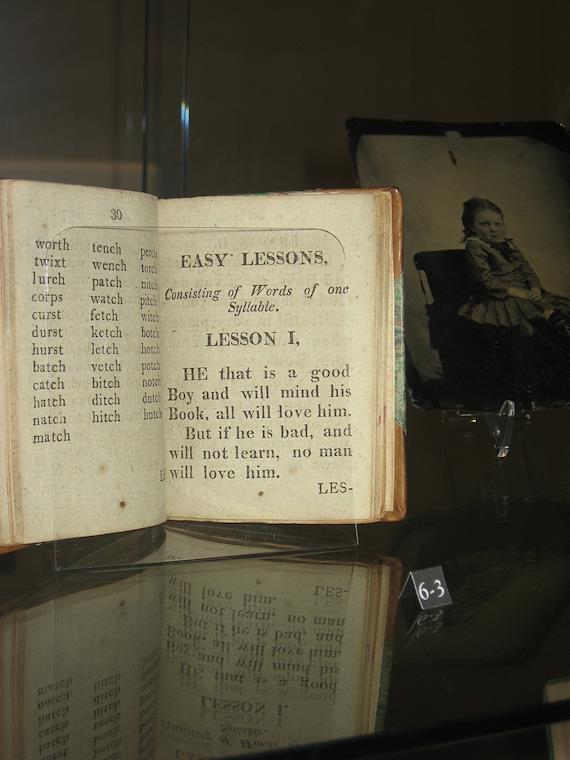 30
worth tench perch
twixt wench torch
lurch patch nitch
corps watch pitch
curst fetch witch
durst ketch botch
hurst letch hotch
batch vetch potch
catch bitch notch
hatch ditch dutch
natch hitch hutch
match
EASY LESSONS,
Consisting of Words of one
Syllable.
LESSON I,
HE that is a good
Boy and will mind his
Book, all will love him.
But if he is bad, and
will not learn, no man
will love him.
LES-
6-3